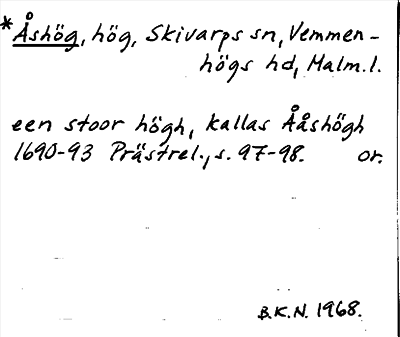 *Åshög, hög, Skivarps sn, Vemmen-
högs hd, Malm.l.
een stoor högh, kallas Ååshögh
1690-93 Prästrel., s. 97-98. or.
B.K.N. 1968.